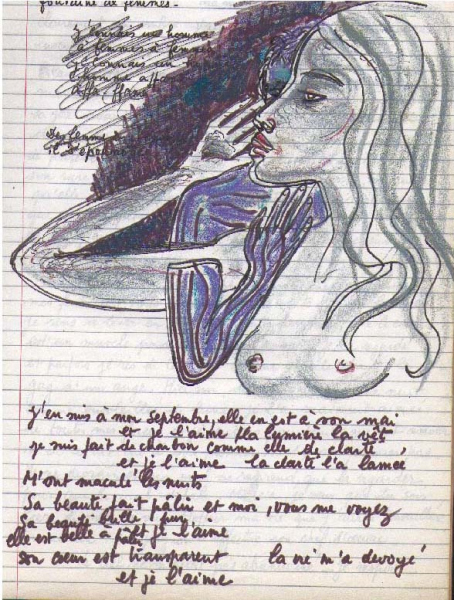 fontaine de femmes.
je connais un homme
à femmes
je connais un
homme
J'en suis à mon septembre, elle en est à son mai
et je l'aime la lumière la vêt
je suis fait de charbon comme elle de clarté,
et je l'aime la clarté l'a lamée
M'ont maculé les nuits
Sa beauté fait pâlir et moi, vous me voyez
Sa beauté
elle est belle à pâlir et je l'aime
son cœur est transparent la vie m'a dévoyé
et je l'aime